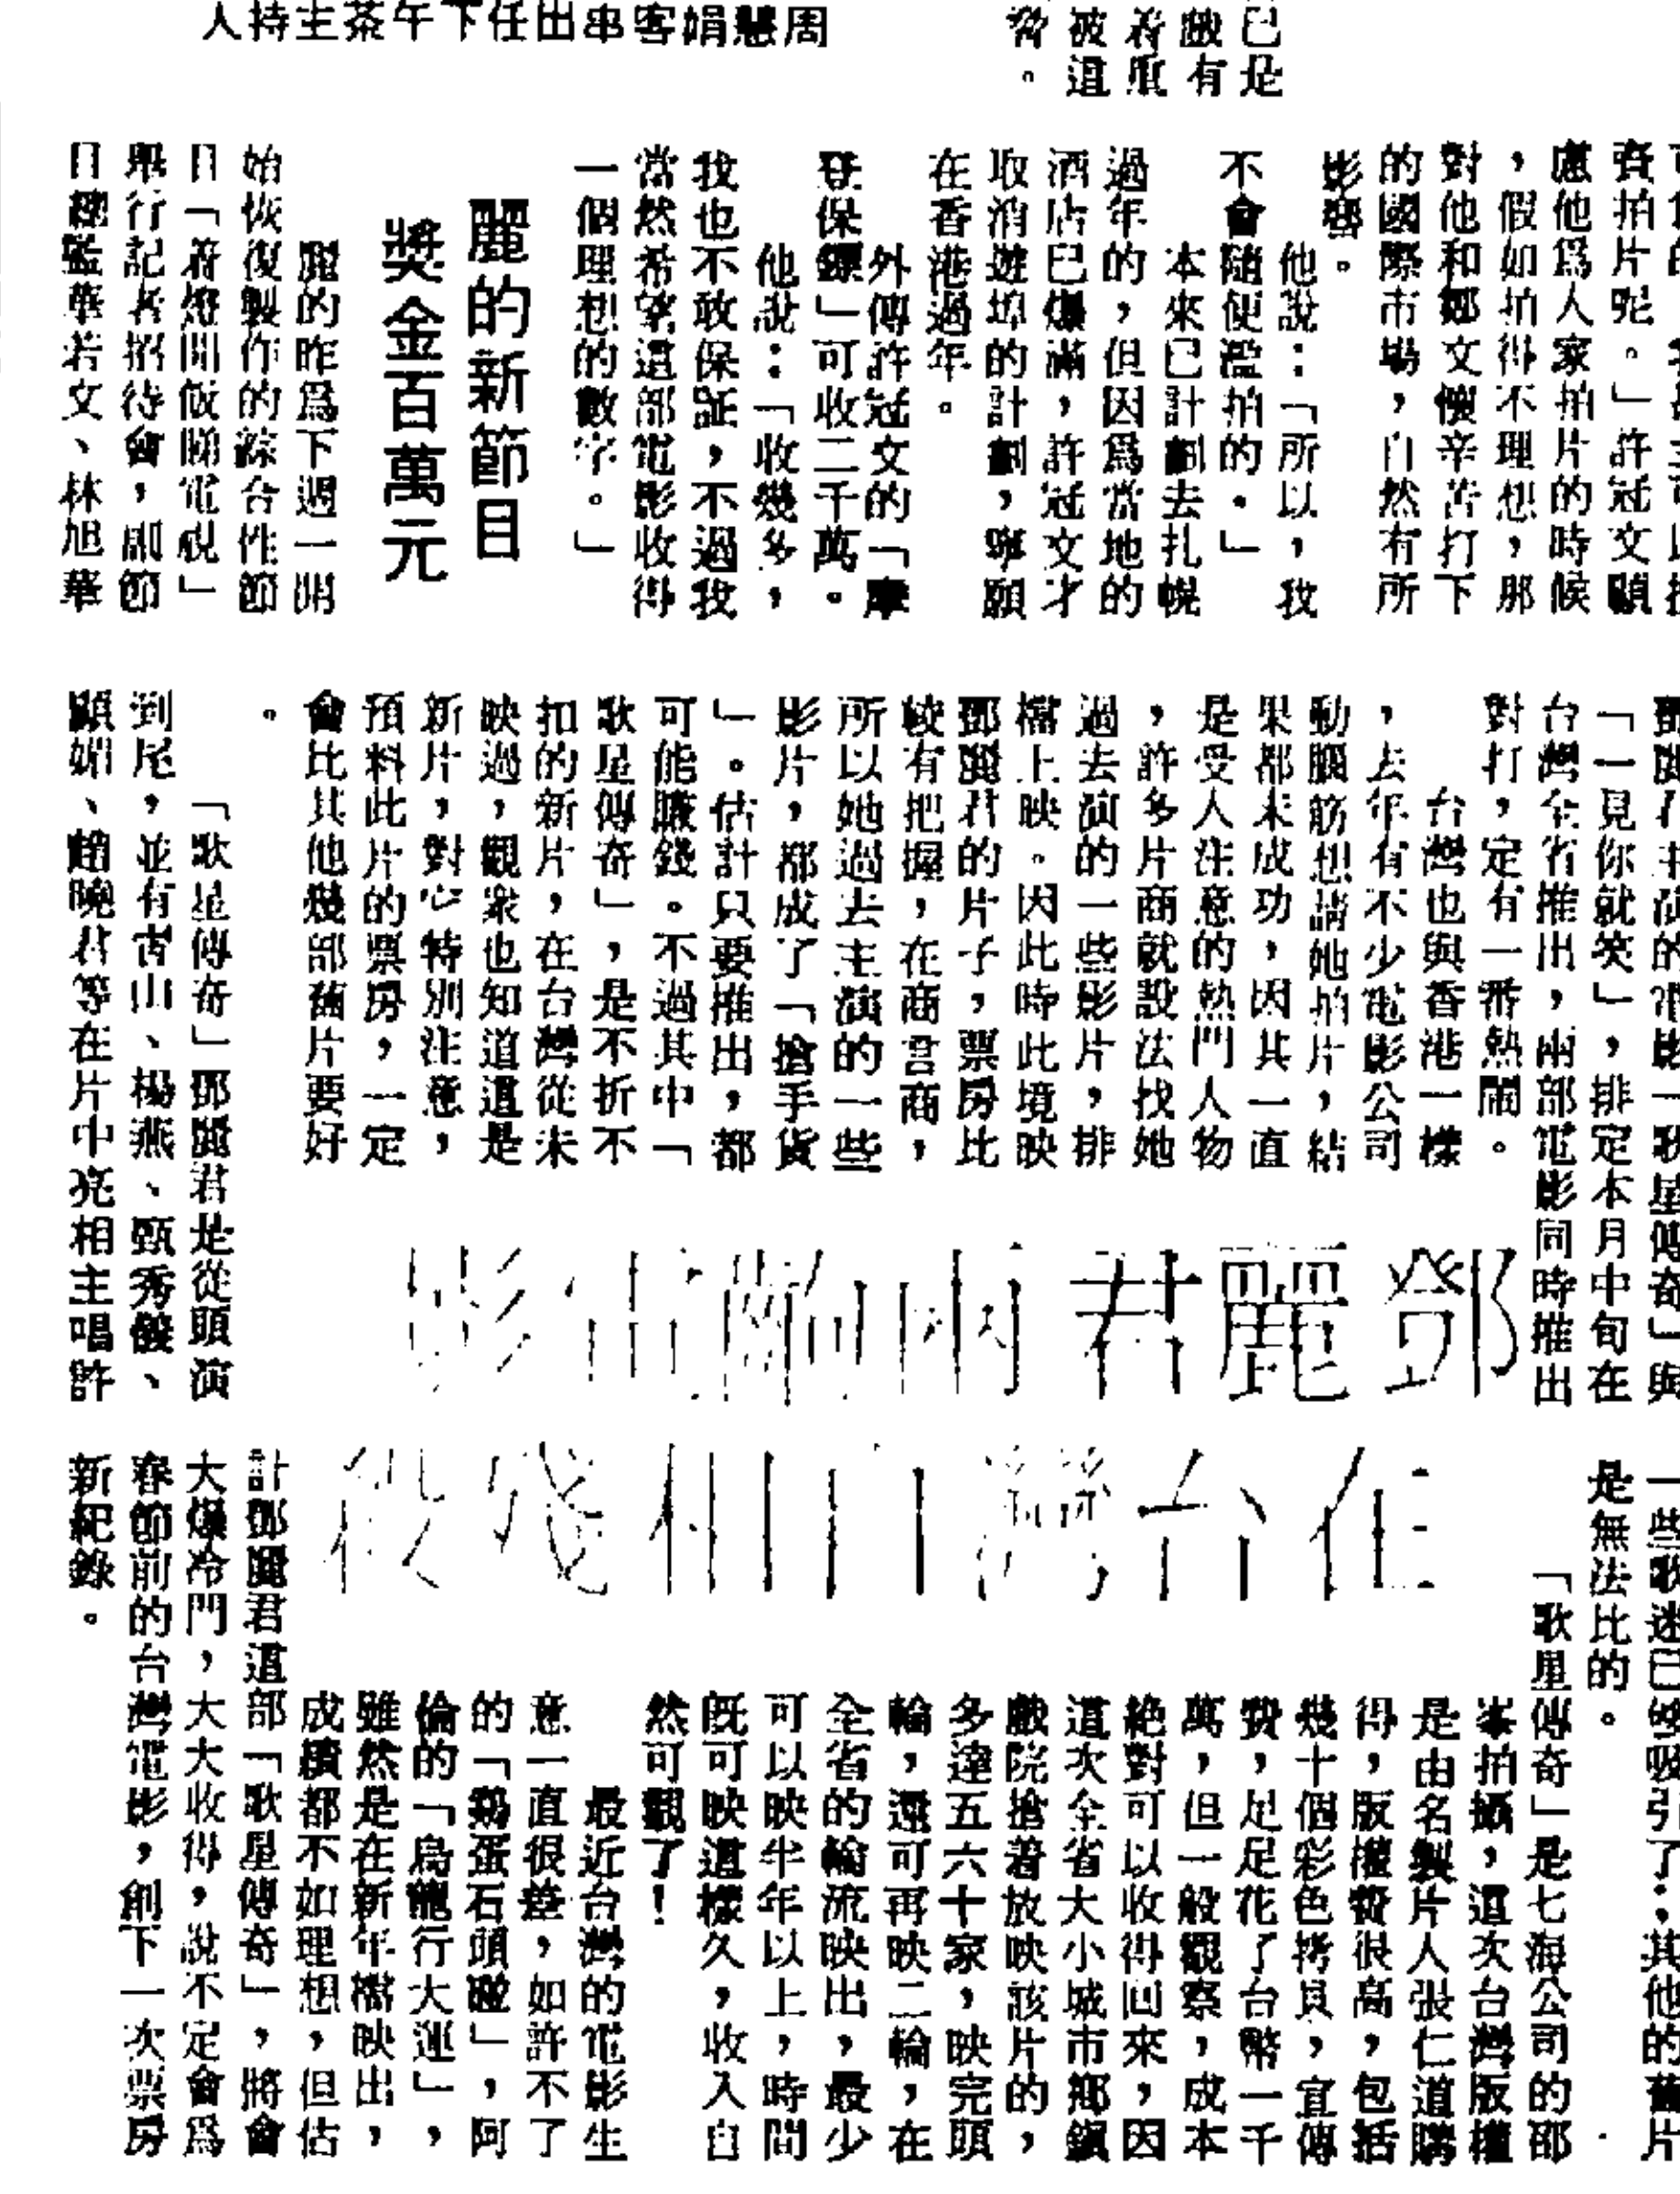 已是
戲有
着重
被這
脅。
周慧娟客串出任下午茶主持人
賣拍片呢。」許冠文顯
慮他爲人家拍片的時候
，假如拍得不理想，那
對他和鄒文懷辛苦打下
的國際市場，自然有所
影響。
他說：「所以，我
不會隨便濫拍的。」
本來已計劃去扎幌
過年的，但因爲當地的
酒店已爆滿，許冠文才
取消遊埠的計劃，寧願
在香港過年。
外傳許冠文的「摩
登保鑣」可收二千萬。
他說：「收幾多，
我也不敢保証，不過我
當然希望這部電影收得
一個理想的數字。」
麗的新節目
獎金百萬元
麗的昨爲下週一開
始恢復製作的綜合性節
目「着燈開飯睇電視」
舉行記者招待會，副節
目總監華若文、林旭華
鄧麗君兩部電影
在台灣
鄧麗君主演的電影「歌星傳奇」與
「一見你就笑」，排定本月中旬在
台灣全省推出，兩部電影同時推出
對打，定有一番熱鬧。
台灣也與香港一樣
，去年有不少電影公司
動腦筋想請她拍片，結
果都未成功，因其一直
是受人注意的熱門人物
，許多片商就設法找她
過去演的一些影片，排
檔上映。因此時此境映
鄧麗君的片子，票房比
較有把握，在商言商，
所以她過去主演的一些
影片，都成了「搶手貨
」。估計只要推出，都
可能賺錢。不過其中「
歌星傳奇」，是不折不
扣的新片，在台灣從未
映過，觀衆也知道這是
新片，對它特別注意，
預料此片的票房，一定
會比其他幾部舊片要好
。
「歌星傳奇」鄧麗君是從頭演
到尾，並有古山、楊燕、甄秀儀、
顧媚、趙曉君等在片中亮相主唱許
一些歌迷已夠吸引了；其他的舊片
是無法比的。
「歌星傳奇」是七海公司的邵
峯拍攝，這次台灣版權
是由名製片人張仁道購
得，版權費很高，包括
幾十個彩色拷貝，宣傳
費，足足花了台幣一千
萬，但一般觀察，成本
絕對可以收得回來，因
這次全省大小城市鄉鎮
戲院搶着放映該片的，
多達五六十家，映完頭
輪，還可再映二輪，在
全省的輪流映出，最少
可以映半年以上，時間
旣可映這樣久，收入自
然可觀了！
最近台灣的電影生
意一直很差，如許不了
的「鷄蛋石頭碰」，阿
倫的「烏龍行大運」，
雖然是在新年檔映出，
成績都不如理想，但估
計鄧麗君這部「歌星傳奇」，將會
大爆冷門，大大收得，說不定會爲
春節前的台灣電影，創下一次票房
新紀錄。